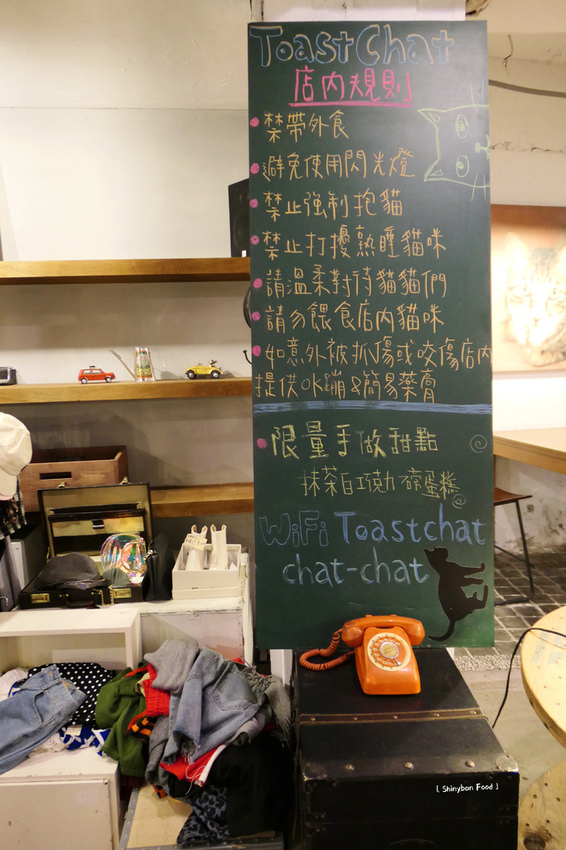 ToastChat
店內規則
禁帶外食
避免使用閃光燈
禁止強制抱貓
禁止打擾熟睡貓咪
請溫柔對待貓貓們
請勿餵食店內貓咪
如意外被抓傷或咬傷店內
提供OK蹦&簡易藥膏
限量手做甜點
抹茶白巧克力磅蛋糕
WiFi Toastchat
chat-chat
[ Shinyban Food ]